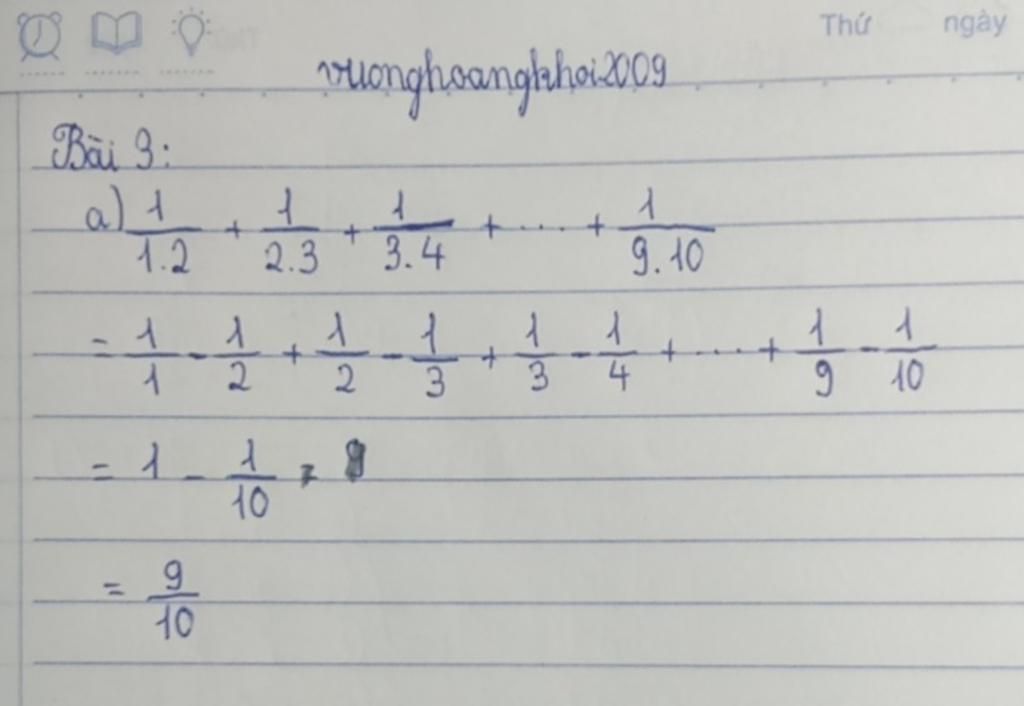 Thứ ngày
vuonghoangkhoi2009
Bài 3:
a) 1/1.2 + 1/2.3 + 1/3.4 + .... + 1/9.10
= 1/1 - 1/2 + 1/2 - 1/3 + 1/3 - 1/4 + .... + 1/9 - 1/10
= 1 - 1/10
= 9/10